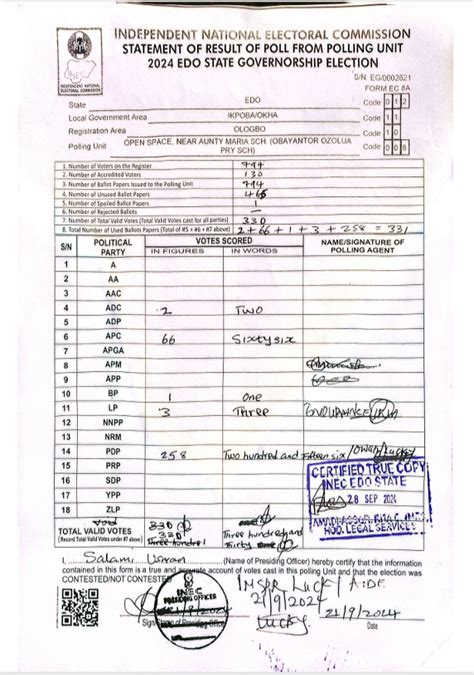 INDEPENDENT NATIONAL ELECTORAL COMMISSION
STATEMENT OF RESULT OF POLL FROM POLLING UNIT
2024 EDO STATE GOVERNORSHIP ELECTION
INDEPENDENT NATIONAL
ELECTORAL COMMISSION
S/N EG/0002621
FORM EC 8A
State EDO Code 0 1 2
Local Government Area IKPOBA/OKHA Code 1 1
Registration Area OLOGBO Code 1 0
Polling Unit OPEN SPACE, NEAR AUNTY MARIA SCH. (OBAYANTOR OZOLUA PRY SCH) Code 0 0 8
1. Number of Voters on the Register 794
2. Number of Accredited Voters
3. Number of Ballot Papers Issued to the Polling Unit 794
4. Number of Unused Ballot Papers
5. Number of Spoiled Ballot Papers
6. Number of Rejected Ballots —
7. Number of Total Valid Votes (Total Valid Votes cast for all parties) 330
8. Total Number of Used Ballots Papers (Total of #5 + #6 + #7 above) 2 + 66 + 1 + 3 + 258 = 331
S/N POLITICAL PARTY VOTES SCORED NAME/SIGNATURE OF POLLING AGENT
IN FIGURES IN WORDS
1 A
2 AA
3 AAC
4 ADC 2 Two
5 ADP
6 APC 66 Sixtysix
7 APGA
8 APM
9 APP
10 BP 1 One
11 LP 3 Three
12 NNPP
13 NRM
14 PDP 258 Two hundred and
15 PRP
16 SDP
17 YPP
18 ZLP
CERTIFIED TRUE COPY
INEC EDO STATE
28 SEP 2024
HOD. LEGAL SERVICES
TOTAL VALID VOTES 330
(Record Total Valid Votes under #7 above) 331
Three hundred and
Thirty one
I, Salami (Name of Presiding Officer) hereby certify that the information
contained in this form is a true and accurate account of votes cast in this polling Unit and that the election was
CONTESTED/NOT CONTESTED
INEC
PRESIDING OFFICER
21/9/2024
Lucky
21/9/2024
Date